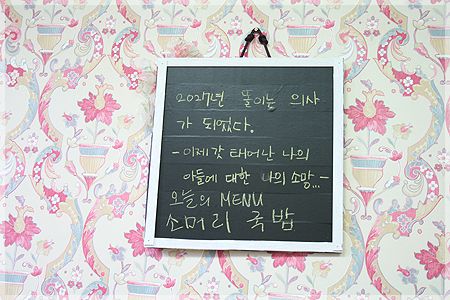 2027년 똘이는 의사
가 되었다.
- 이제갓 태어난 나의
아들에 대한 나의 소망... -
오늘의 MENU
소머리 국밥